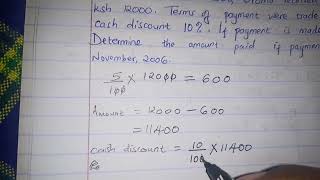 ksh 12000. Terms of payment were trade
cash discount 10%. If payment is made
Determine the amount paid if payment
November, 2006.
5/100 × 12000 = 600
Amount = 12000 - 600
= 11400
cash discount = 10/100 × 11400